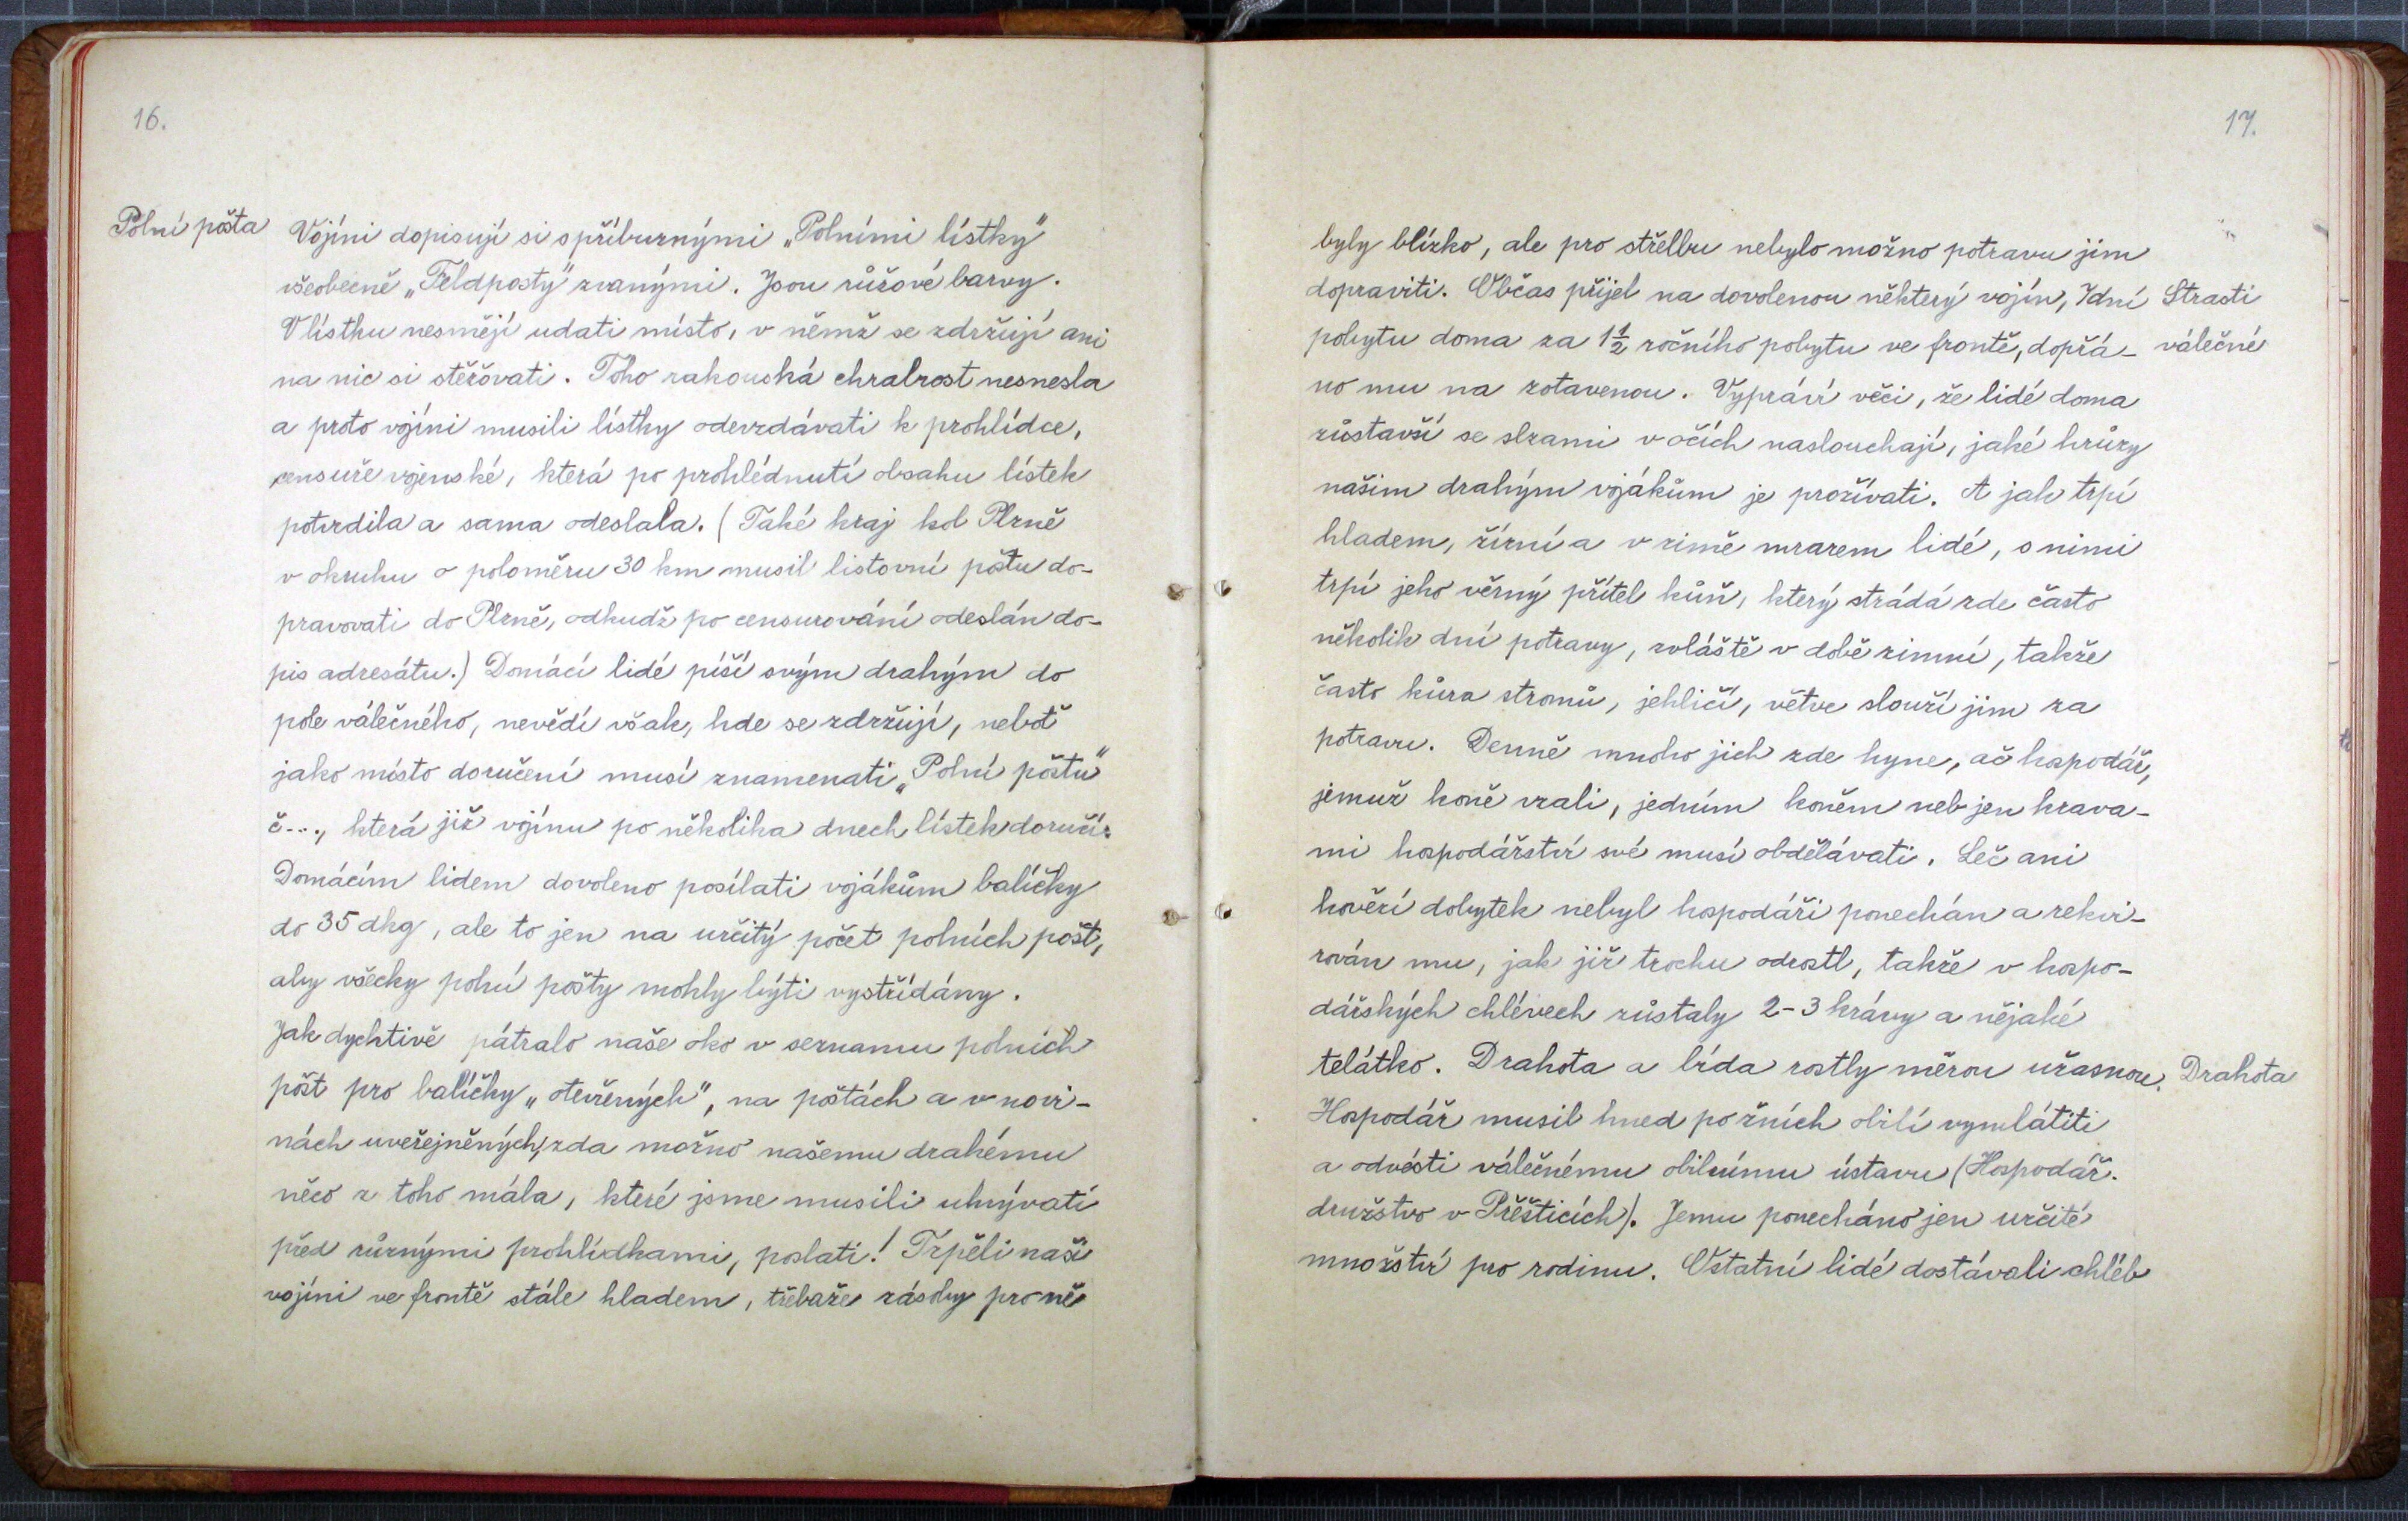 16.
Polní pošta
Vojíni dopisují si s příbuznými „Polními lístky"
všeobecně „Feldposty" zvanými. Jsou růžové barvy.
V lístku nesmějí udati místo, v němž se zdržují ani
na nic si stěžovati. Toho rakouská chrabrost nesnesla
a proto vojíni musili lístky odevzdávati k prohlídce,
censuře vojenské, která po prohlédnutí obsahu lístek
potvrdila a sama odeslala. (Také kraj kol Plzně
v okruhu o poloměru 30 km musil listovní poštu do-
pravovati do Plzně, odkudž po censurování odeslán do-
pis adresátu.) Domácí lidé píší svým drahým do
pole válečného, nevědí však, kde se zdržují, neboť
jako místo doručení musí znamenati „Polní poštu"
č...., která již vojínu po několika dnech lístek doručí.
Domácím lidem dovoleno posílati vojákům balíčky
do 35 dkg, ale to jen na určitý počet polních pošt,
aby všecky polní pošty mohly býti vystřídány.
Jak dychtivě pátralo naše oko v seznamu polních
pošt pro balíčky „otevřených", na poštách a v novi-
nách uveřejněných, zda možno našemu drahému
něco z toho mála, které jsme musili uhývati
před různými prohlídkami, poslati! Trpěli naši
vojíni ve frontě stále hladem, třebaže zásoby pro ně
17.
byly blízko, ale pro střelbu nebylo možno potravu jim
dopraviti. Občas přijel na dovolenou některý vojín, 7dní
Strasti
pobytu doma za 1 1/2 ročního pobytu ve frontě, dopřá-
válečné
no mu na zotavenou. Vypráví věci, že lidé doma
zůstavší se slzami v očích naslouchají, jaké hrůzy
našim drahým vojákům je prožívati. A jak trpí
hladem, žízní a v zimě mrazem lidé, s nimi
trpí jeho věrný přítel kůň, který strádá zde často
několik dní potravy, zvláště v době zimní, takže
často kůra stromů, jehličí, větve slouží jim za
potravu. Denně mnoho jich zde hyne, ač hospodář,
jemuž koně vzali, jedním koněm neb jen krava-
mi hospodářství své musí obdělávati. Leč ani
hovězí dobytek nebyl hospodáři ponechán a rekvi-
rován mu, jak již trochu odrostl, takže v hospo-
dářských chlévech zůstaly 2-3 krávy a nějaké
telátko. Drahota a bída rostly měrou úžasnou.
Drahota
Hospodář musil hned po žních obilí vymlátiti
a odvésti válečnému obilnímu ústavu (Hospodář.
družstvo v Přešticích). Jemu ponecháno jen určité
množství pro rodinu. Ostatní lidé dostávali chléb